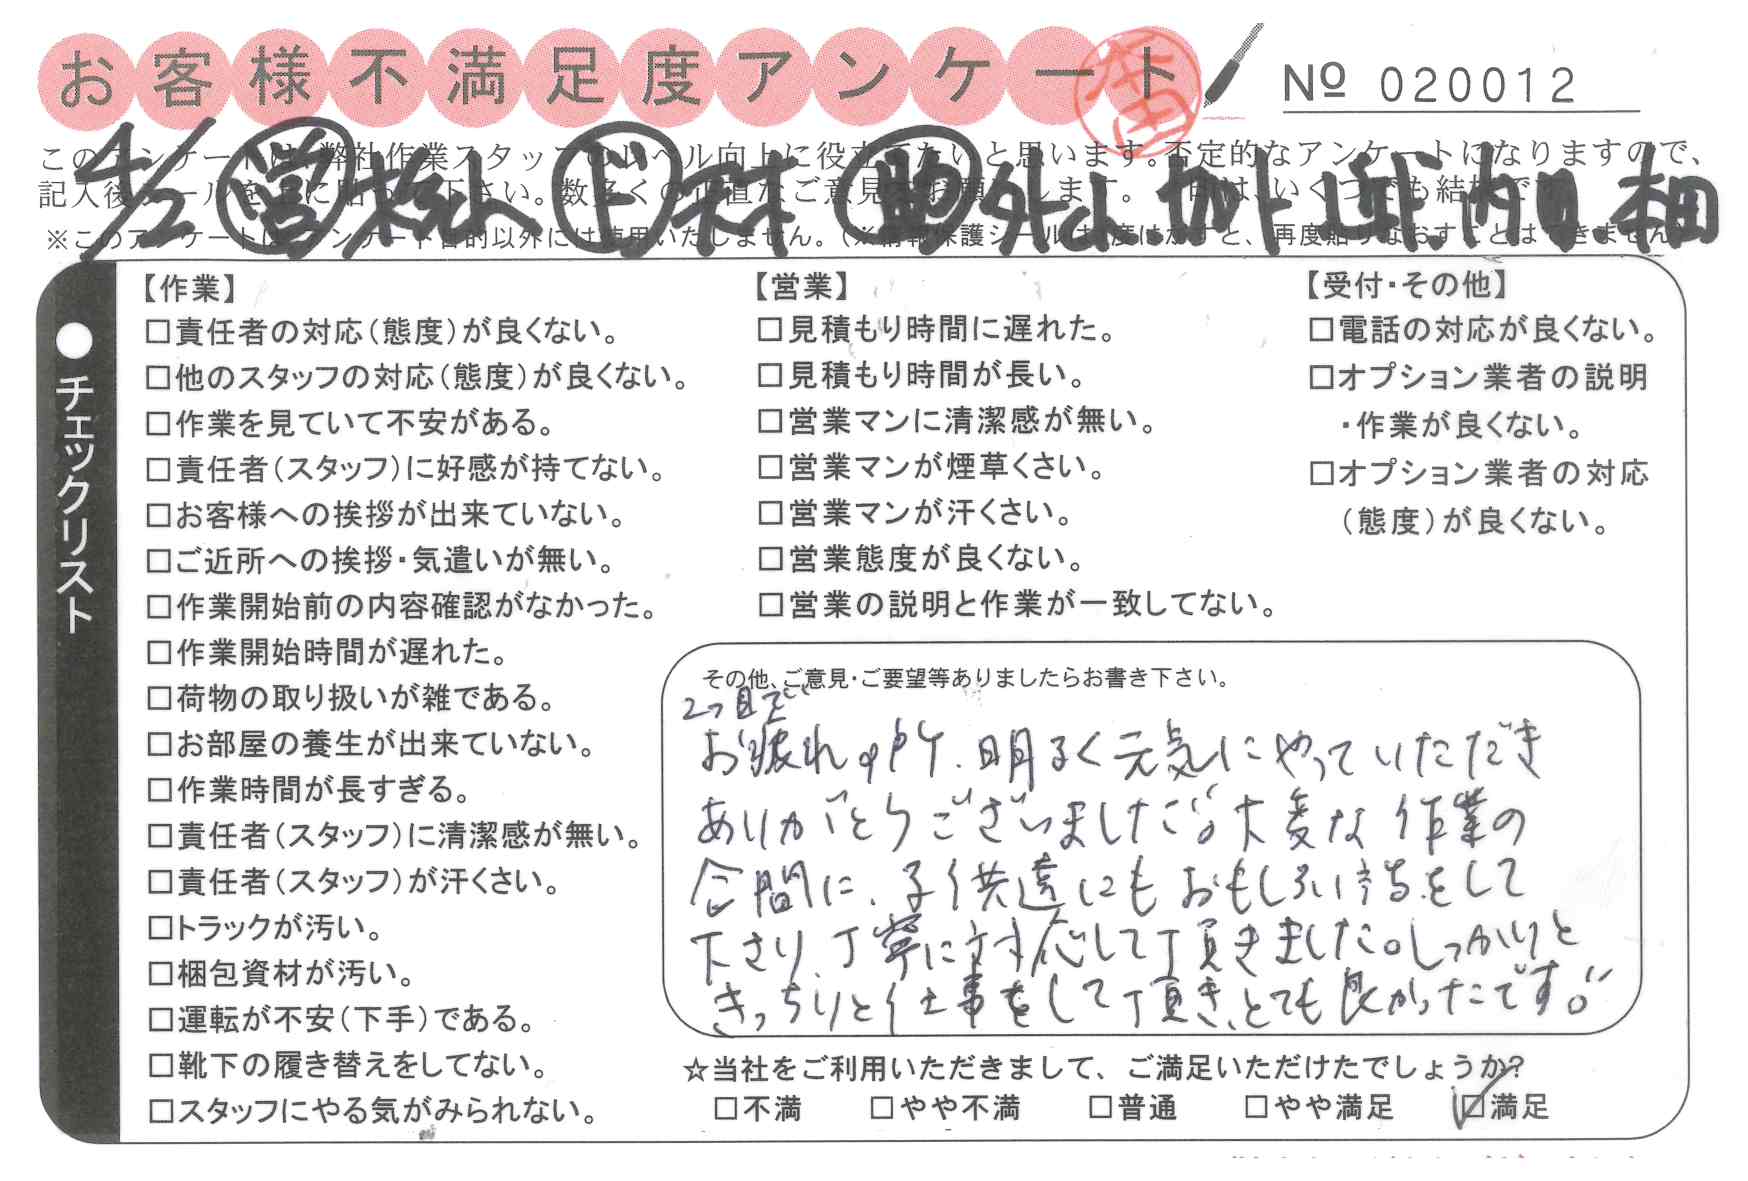 お客様不満足度アンケート
№ 020012
4/2 営 ド 助
このアンケートは、弊社作業スタッフのレベル向上に役立てたいと思います。否定的なアンケートになりますので、
記入後シールを上に貼って下さい。数多くの正直なご意見をお願いします。 印は、いくつでも結構です
※このアンケートは、アンケート目的以外には使用いたしません。(※情報保護シールは1度はがすと、再度貼りなおすことはできません)
●チェックリスト
【作業】
□責任者の対応(態度)が良くない。
□他のスタッフの対応(態度)が良くない。
□作業を見ていて不安がある。
□責任者(スタッフ)に好感が持てない。
□お客様への挨拶が出来ていない。
□ご近所への挨拶・気遣いが無い。
□作業開始前の内容確認がなかった。
□作業開始時間が遅れた。
□荷物の取り扱いが雑である。
□お部屋の養生が出来ていない。
□作業時間が長すぎる。
□責任者(スタッフ)に清潔感が無い。
□責任者(スタッフ)が汗くさい。
□トラックが汚い。
□梱包資材が汚い。
□運転が不安(下手)である。
□靴下の履き替えをしてない。
□スタッフにやる気がみられない。
【営業】
□見積もり時間に遅れた。
□見積もり時間が長い。
□営業マンに清潔感が無い。
□営業マンが煙草くさい。
□営業マンが汗くさい。
□営業態度が良くない。
□営業の説明と作業が一致してない。
【受付・その他】
□電話の対応が良くない。
□オプション業者の説明
・作業が良くない。
□オプション業者の対応
(態度)が良くない。
その他、ご意見・ご要望等ありましたらお書き下さい。
2つ目で
お疲れの所、明るく元気にやっていただき
ありがとうございました。大変な作業の
合間に、子供達にもおもしろい話をして
下さり、丁寧に対応して頂きました。しっかりと
きっちりと仕事をして頂き、とても良かったです。
☆当社をご利用いただきまして、ご満足いただけたでしょうか?
□不満 □やや不満 □普通 □やや満足 ☑満足